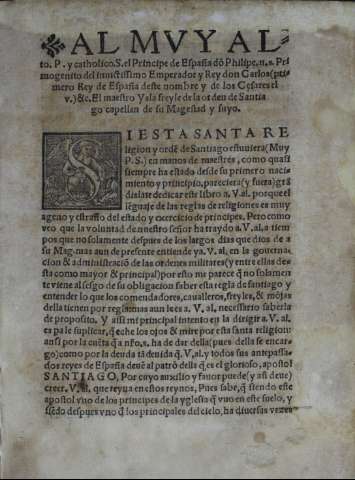 AL MVY AL-
to. P. y catholico. S. el Principe de España dō Philipe. n. s. Pri
mogenito del inuictissimo Emperador y Rey don Carlos (pri
mero Rey de España deste nombre y de los Cesares el
v.) &c. El maestro Ysla freyle de la orden de Santia
go capellan de su Magestad y suyo.
SI ESTA SANTA RE
ligion y ordē de Santiago estuuiera (Muy
P. S.) en manos de maestres, como quasi
siempre ha estado desde su primero naci-
miento y principio, pareciera (y fuera) grā
dislate dedicar este libro a V. al. porque el
lēguaje de las reglas de religiones es muy
ageno y estraño del estado y exercicio de principes. Pero como
veo que la voluntad de nuestro señor ha traydo a. V. al. a tiem
pos que no solamente despues de los largos dias que dios de a
su Mag. mas aun de presente entiende ya. V. al. en la gouerna-
cion & administraciō de las ordenes militares (y entre ellas des
ta como mayor & principal) por esto me parece q̄ no solamen
te viene al sesgo de su obligacion saber esta regla de santiago y
entender lo que los comendadores, caualleros, freyles, & mōjas
della tienen por regla: mas aun le es a. V. al. necessario saberla
de proposito. Y assi mi principal intento en la dirigir a. V. al.
es pa le suplicar, q̄ eche los ojos & mire por esta santa religion:
ansi por la cuēta q̄ a nro. s. ha de dar della (pues della se encar-
ga) como por la deuda tā deuida q̄. V. al. y todos sus antepassa-
dos reyes de España deuē al patrō dellos q̄ es el glorioso, apostol
SANTIAGO, Por cuyo auxilio y fauor puede (y assi deue)
creer. V. al. que reyna en estos reynos. Pues sabe, q̄ siendo este
apostol vno de los principes de la yglesia q̄ vuo en este suelo, y
siēdo despues vno q̄ los principales del cielo, ha diuersas vezes